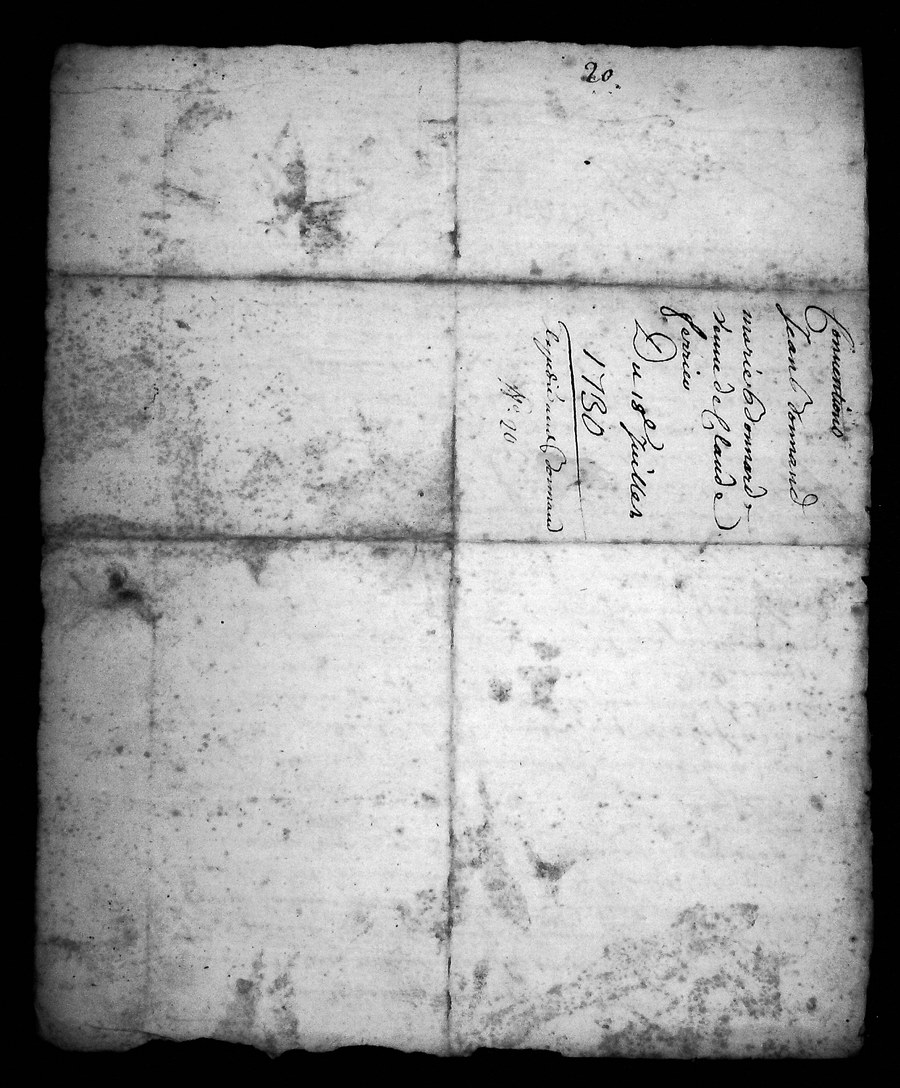 20.
Conventions
Jean Bonnand
marie Bonnard
veuve de Claude
ferrier
Du 18e Juillet
1730
Expedié aud Bonnand
No. 20